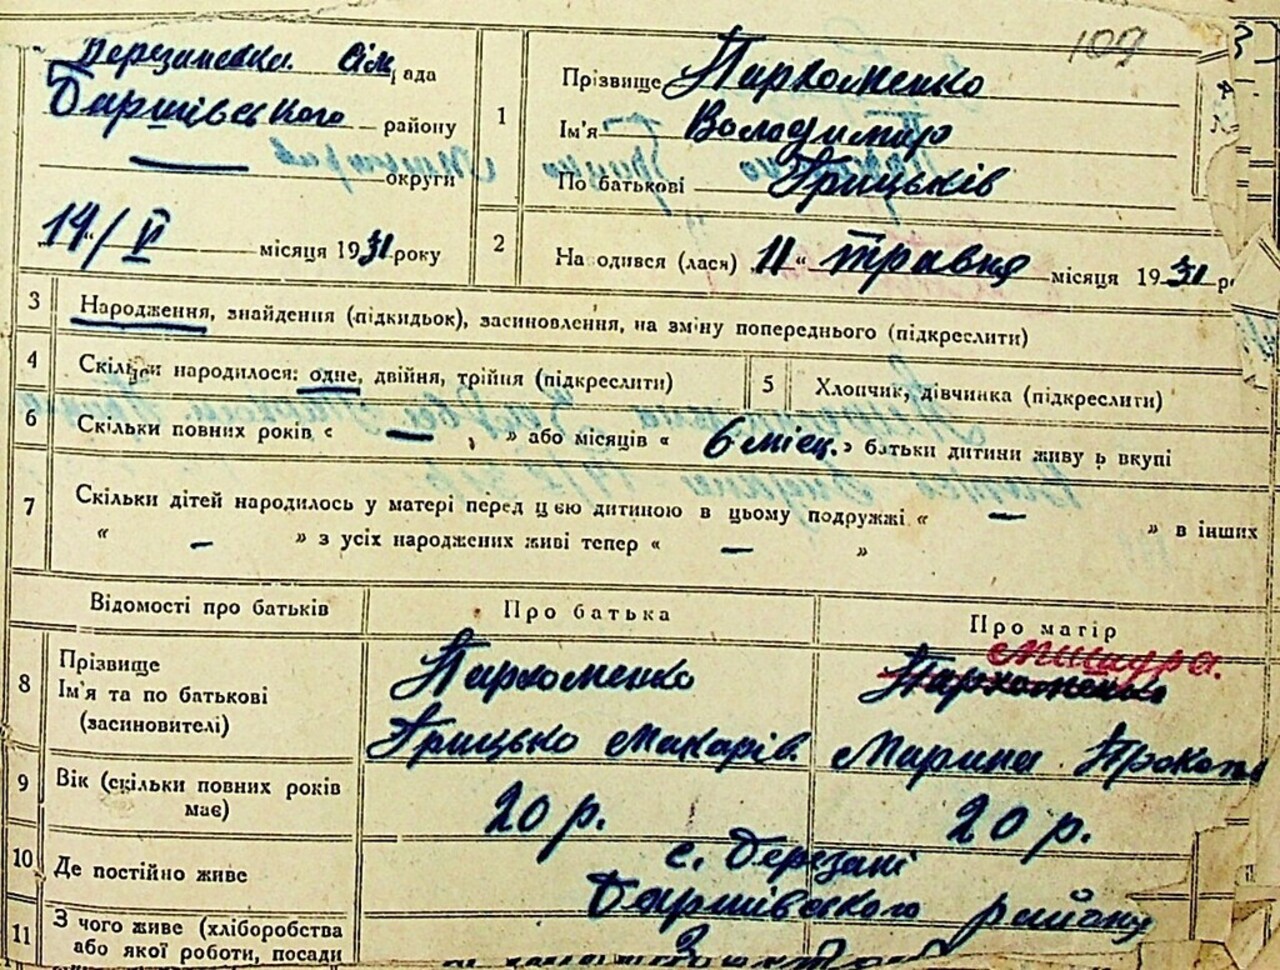 Березанська сіл, ада
Баришівського району
округи
„14“/V місяця 1931 року
109
1
Прізвище Пархоменко
Ім'я Володимир
По батькові Грицьків
2
Народився (лася) „11“ травня місяця 1931 р
3 Народження, знайдення (підкидьок), засиновлення, на зміну попереднього (підкреслити)
4 Скільки народилося: одне, двійня, трійня (підкреслити)
5 Хлопчик, дівчинка (підкреслити)
6 Скільки повних років « — , » або місяців « 6 місц. » батьки дитини живуть вкупі
7 Скільки дітей народилось у матері перед цією дитиною в цьому подружжі « — » в інших
« — » з усіх народжених живі тепер « — »
Відомості про батьків Про батька Про матір
8 Прізвище
Ім'я та по батькові
(засиновителі)
Пархоменко
Грицько Макарів.
Пархоменко
Марина Прокоп
9 Вік (скільки повних років
має)
20 р. 20 р.
10 Де постійно живе
с. Березані
Баришівського району
11 З чого живе (хліборобства
або якої роботи, посади